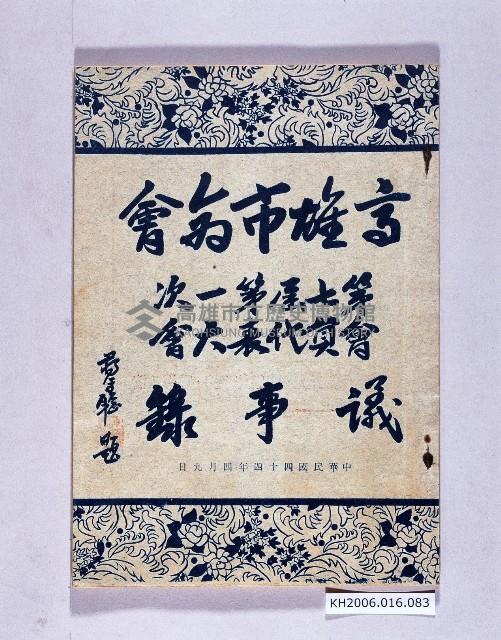 高雄市商會
第七屆第一次
高雄市立歷史博物館
KAOHSIUNG MUSEUM OF HISTORY
會員代表大會
議事錄
題
中華民國四十四年四月九日
KH2006.016.083